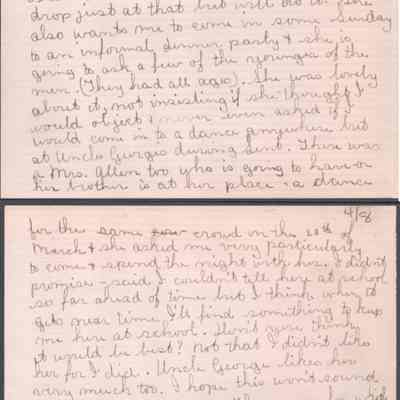 drop just at that but will do it. She
also wants me to come in some Sunday
to an informal dinner party & she is
going to ask a few of the younger of the
men. (They had all ages). She was lovely
about it, not insisting if she thought I
would object & never even asked if I
would come in to a dance anywhere but
at Uncle Georgie's during Lent. There was
a Mrs. Allen too who is going to have or
her brother is at her place - a dance
4/8
for the same crowd on the 28th of
March & she asked me very particularly
to come & spend the night with her. I didn't
promise - said I couldn't tell here at school
so far ahead of time but I think when it
gets near time I'll find something to keep
me here at school. Don't you think
it would be best? Not that I didn't like
her for I did. Uncle George likes her
very much too. I hope this won't sound